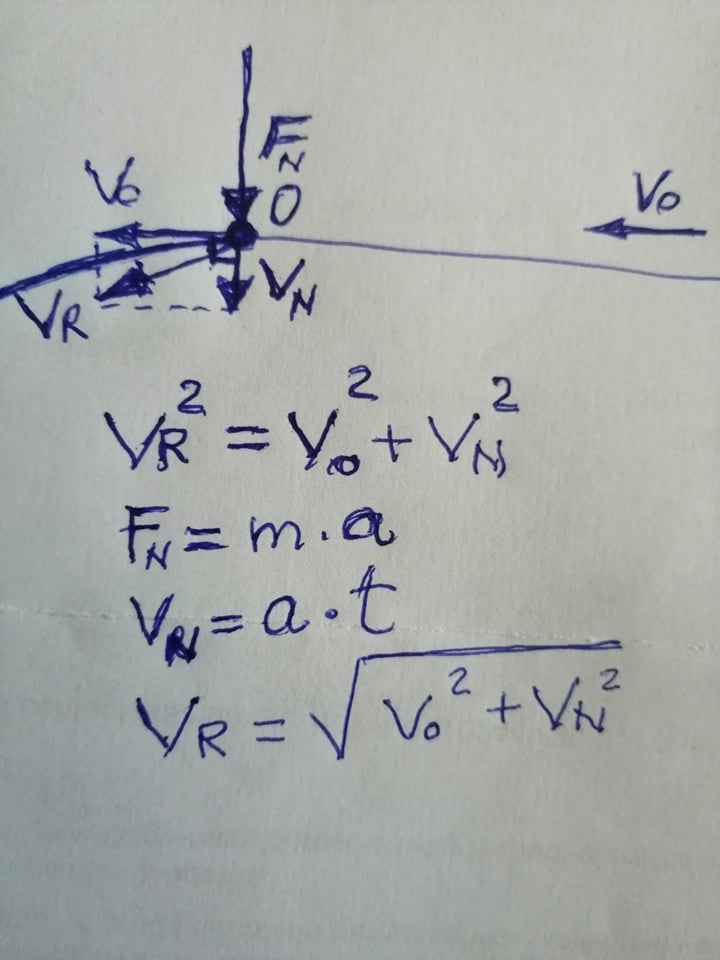 F_N
O
V₀
V₀
V_N
V_R
V_R² = V₀² + V_N²
F_N = m · a
V_N = a · t
V_R = √(V₀² + V_N²)